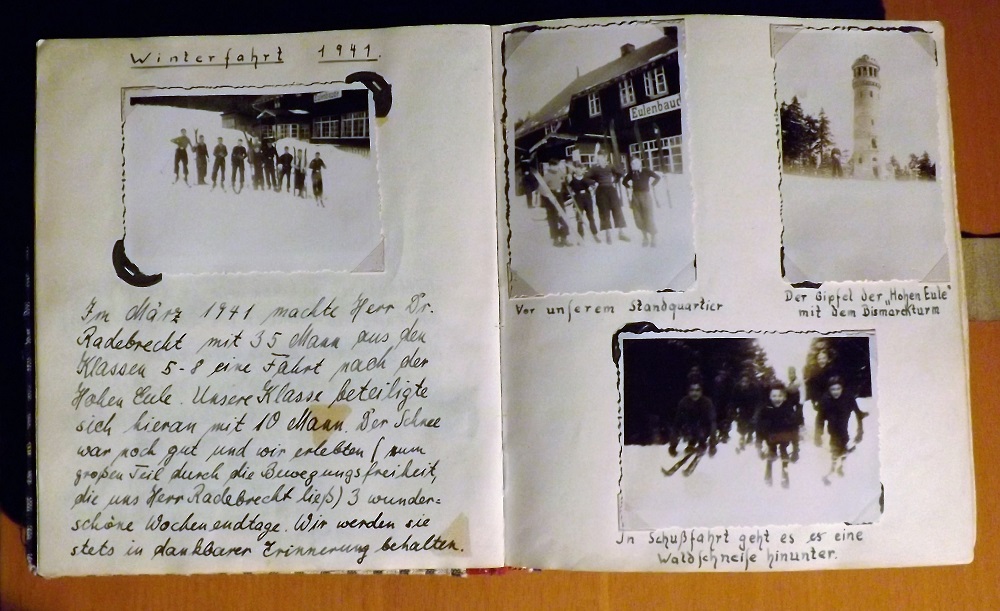 Winterfahrt 1941.
Im März 1941 machte Herr Dr.
Radebrecht mit 35 Mann aus den
Klassen 5-8 eine Fahrt nach der
Hohen Eule. Unsere Klasse beteiligte
sich hieran mit 10 Mann. Der Schnee
war noch gut und wir erlebten (zum
großen Teil durch die Bewegungsfreiheit,
die uns Herr Radebrecht ließ) 3 wunder=
schöne Wochenendtage. Wir werden sie
stets in dankbarer Erinnerung behalten.
Eulenbaud
Vor unserem Standquartier
Der Gipfel der „Hohen Eule"
mit dem Bismarckturm
In Schußfahrt geht es es eine
Waldschneise hinunter.